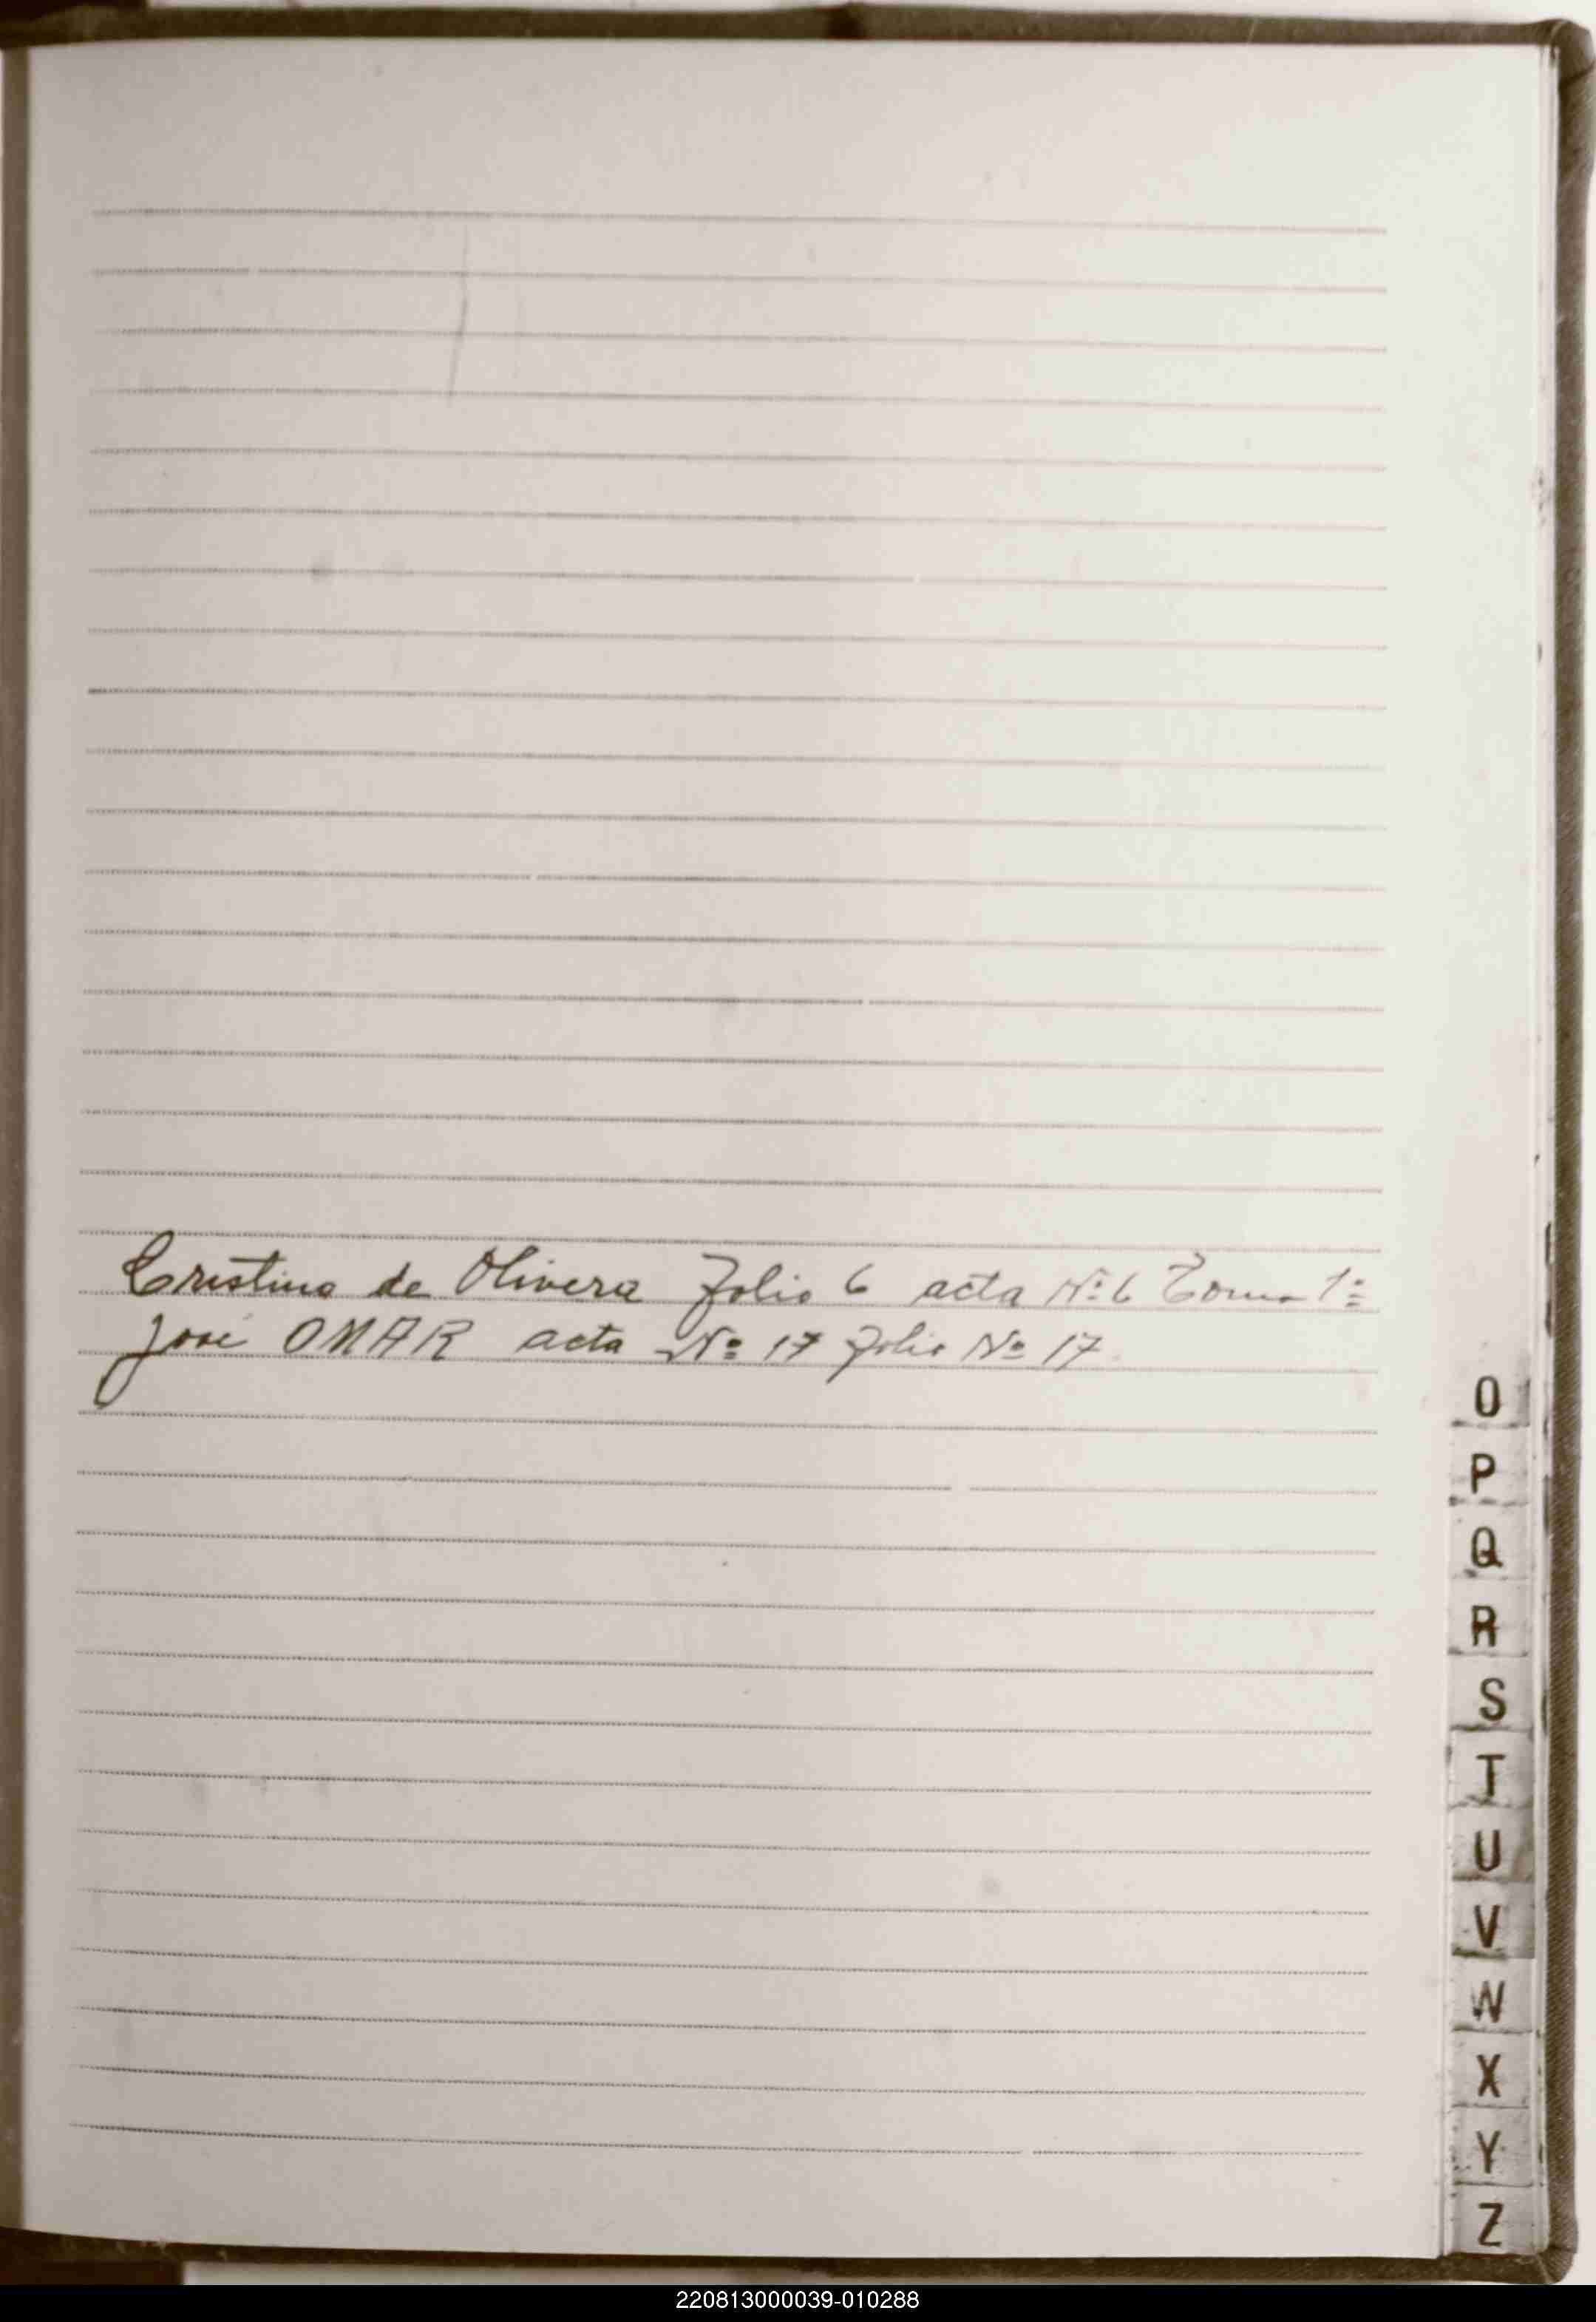 Cristina de Olivera Folio 6 acta Nº 6 Tomo 1º
José OMAR acta Nº 17 Folio Nº 17
O
P
Q
R
S
T
U
V
W
X
Y
Z
220813000039-010288